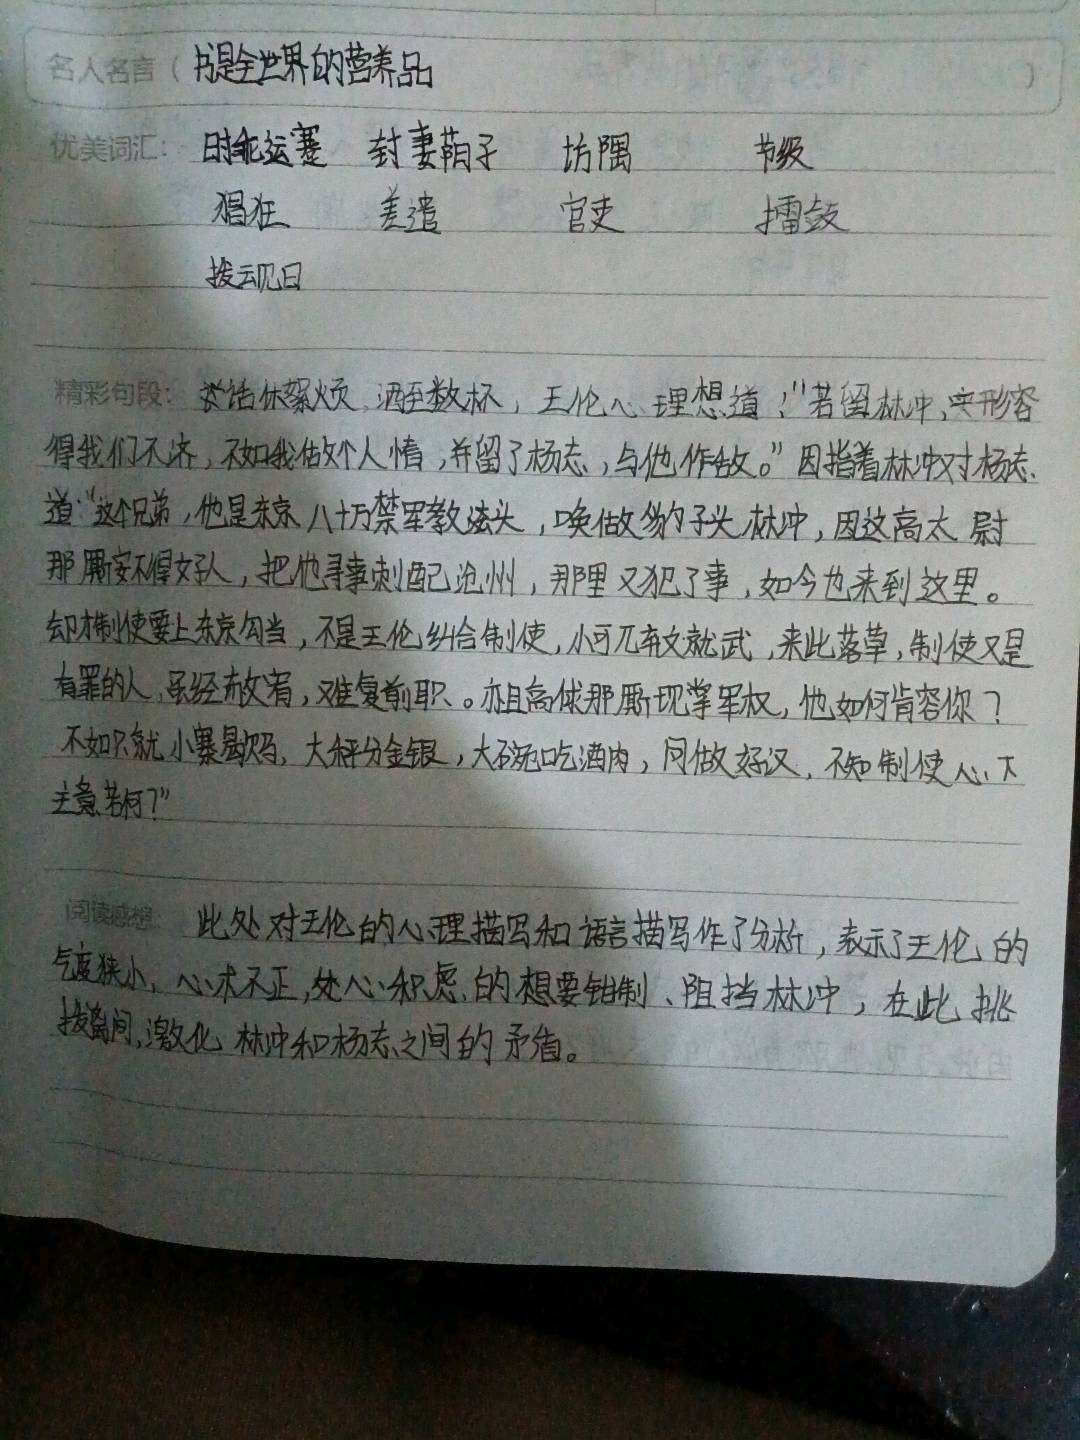 名人名言（书是全世界的营养品）
优美词汇：时乖运蹇 封妻荫子 坊隅 节级
猖狂 差遣 官吏 擂鼓
拨云见日
精彩句段：话休絮烦，酒至数杯，王伦心理想道："若留林冲，实形容
得我们不济，不如我做个人情，并留了杨志，与他作敌。"因指着林冲对杨志
道："这个兄弟，他是东京八十万禁军教头，唤做豹子头林冲，因这高太尉
那厮安不得好人，把他寻事刺配沧州，那里又犯了事，如今也来到这里。
却才制使要上东京勾当，不是王伦纠合制使，小可兀弃文就武，来此落草，制使又是
有罪的人，虽经赦宥，难复前职。亦且高俅那厮现掌军权，他如何肯容你？
不如只就小寨歇马，大秤分金银，大碗吃酒肉，同做好汉，不知制使心下
主意若何？"
阅读感想：此处对王伦的心理描写和语言描写作了分析，表示了王伦的
气度狭小，心术不正，处心积虑的想要钳制、阻挡林冲，在此挑
拨离间，激化林冲和杨志之间的矛盾。